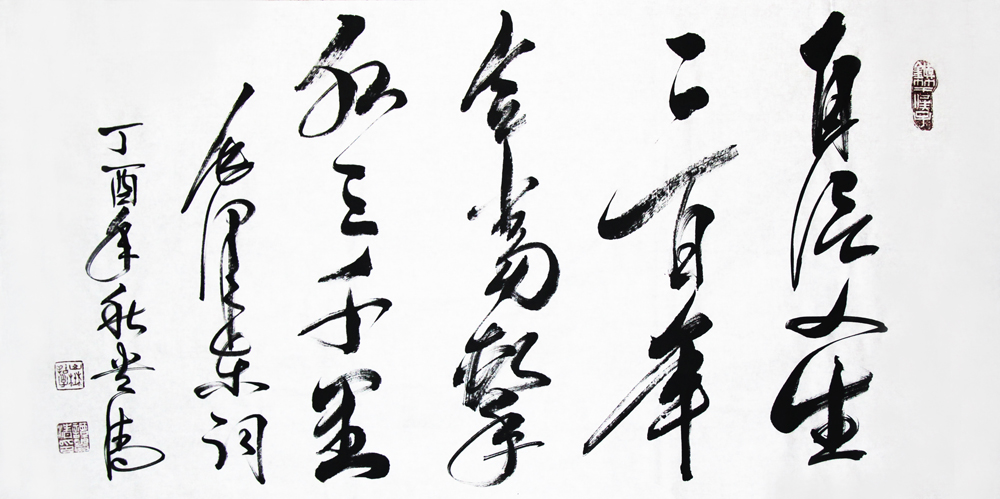 自信人生
二百年
会當擊
水三千里
毛澤東詞
丁酉年秋